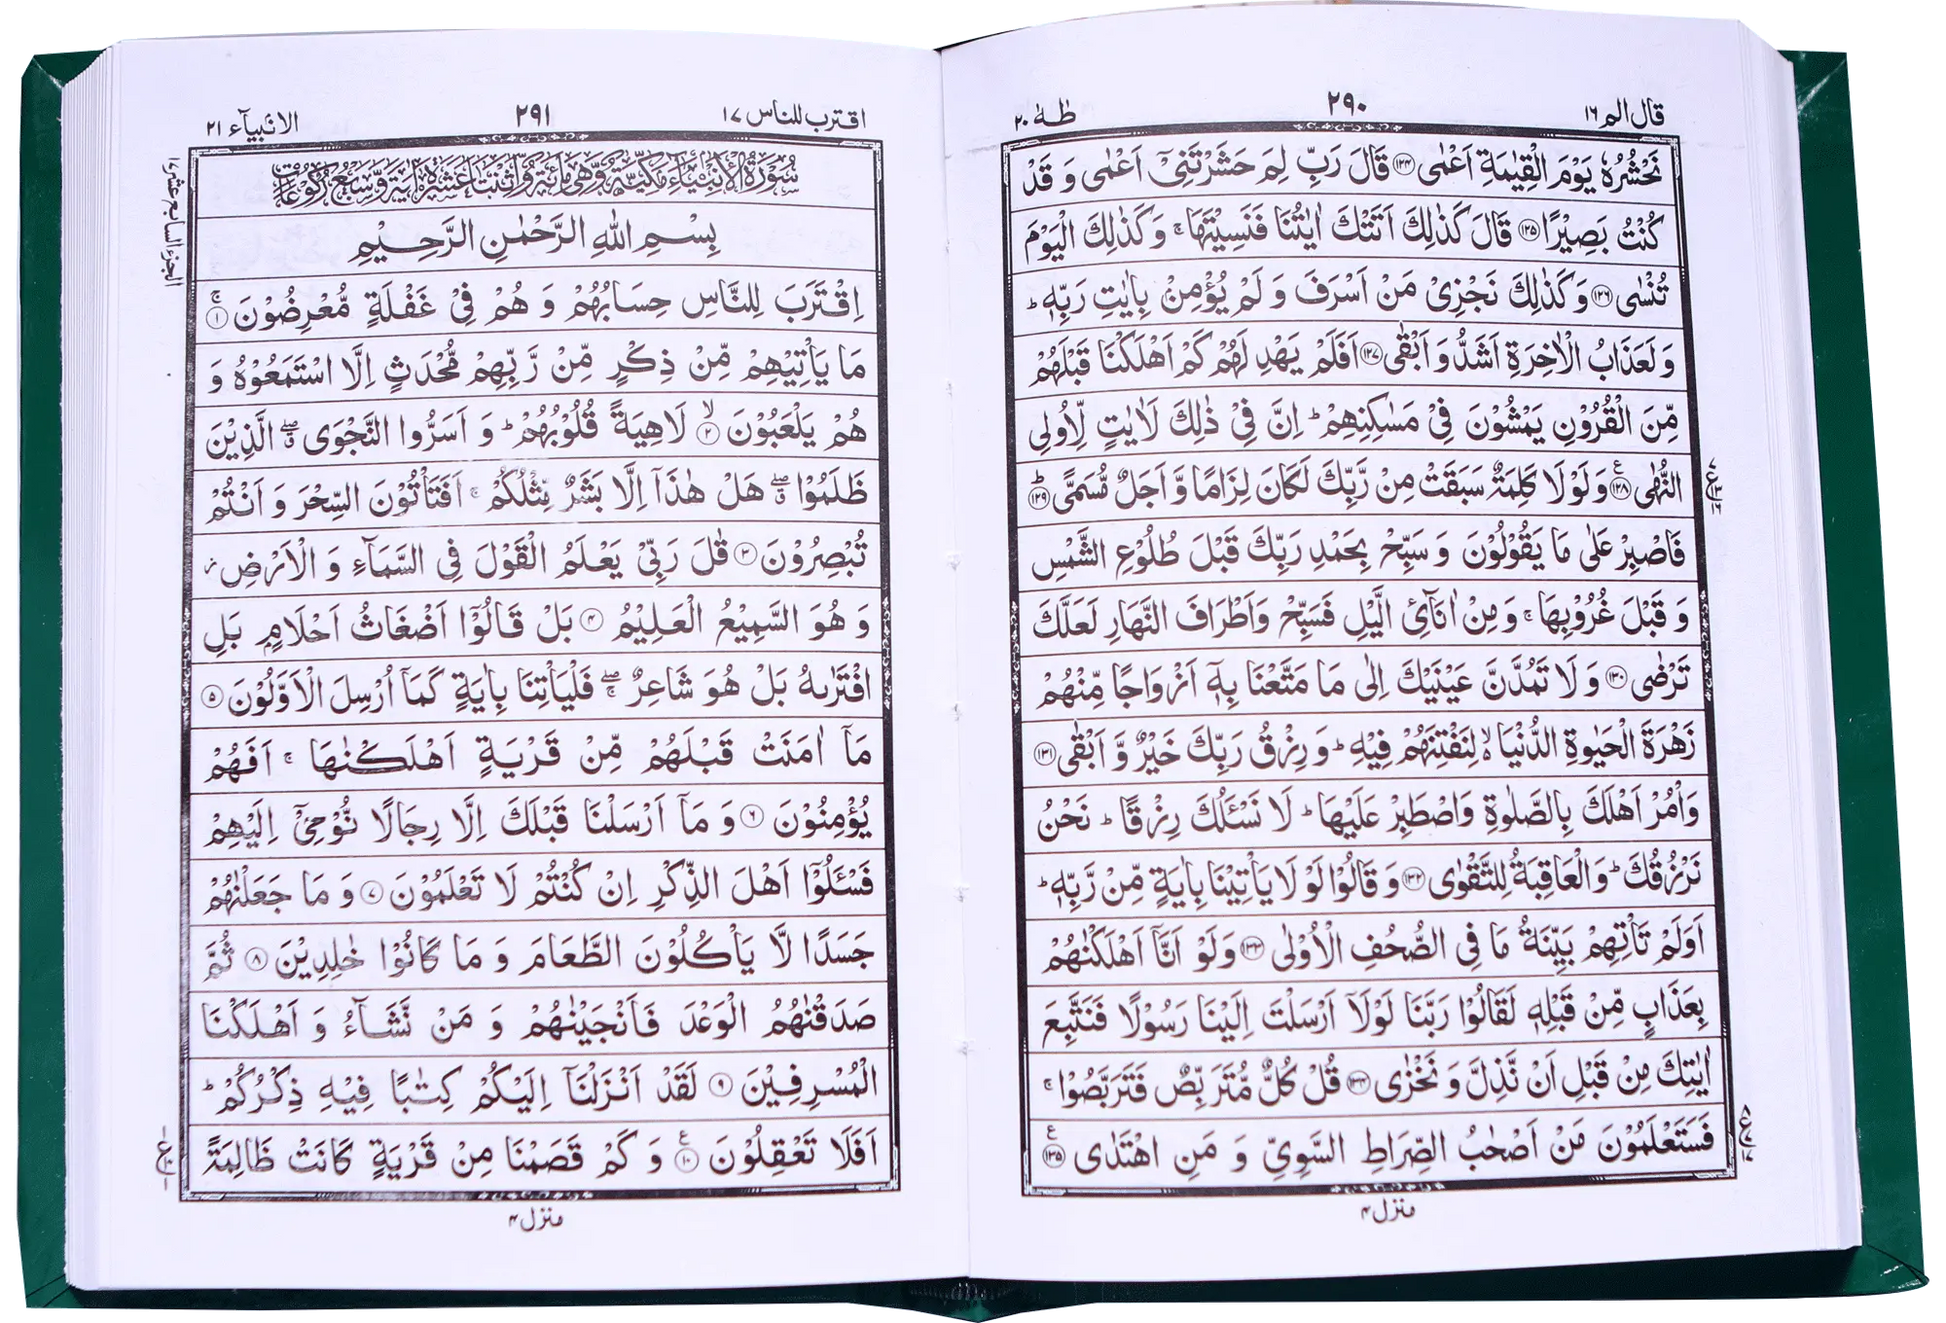 قال الم ١٦
٢٩٠
طٰهٰ ٢٠
نَحْشُرُهٗ يَوْمَ الْقِيٰمَةِ اَعْمٰى ١٢٤ قَالَ رَبِّ لِمَ حَشَرْتَنِيْٓ اَعْمٰى وَ قَدْ
كُنْتُ بَصِيْرًا ١٢٥ قَالَ كَذٰلِكَ اَتَتْكَ اٰيٰتُنَا فَنَسِيْتَهَا ۚ وَ كَذٰلِكَ الْيَوْمَ
تُنْسٰى ١٢٦ وَ كَذٰلِكَ نَجْزِيْ مَنْ اَسْرَفَ وَ لَمْ يُؤْمِنْ بِاٰيٰتِ رَبِّهٖ ؕ
وَ لَعَذَابُ الْاٰخِرَةِ اَشَدُّ وَ اَبْقٰى ١٢٧ اَفَلَمْ يَهْدِ لَهُمْ كَمْ اَهْلَكْنَا قَبْلَهُمْ
مِّنَ الْقُرُوْنِ يَمْشُوْنَ فِيْ مَسٰكِنِهِمْ ؕ اِنَّ فِيْ ذٰلِكَ لَاٰيٰتٍ لِّاُولِي
النُّهٰى ١٢٨ وَ لَوْ لَا كَلِمَةٌ سَبَقَتْ مِنْ رَّبِّكَ لَكَانَ لِزَامًا وَّ اَجَلٌ مُّسَمًّى ١٢٩
فَاصْبِرْ عَلٰى مَا يَقُوْلُوْنَ وَ سَبِّحْ بِحَمْدِ رَبِّكَ قَبْلَ طُلُوْعِ الشَّمْسِ
وَ قَبْلَ غُرُوْبِهَا ۚ وَ مِنْ اٰنَآئِ الَّيْلِ فَسَبِّحْ وَ اَطْرَافَ النَّهَارِ لَعَلَّكَ
تَرْضٰى ١٣٠ وَ لَا تَمُدَّنَّ عَيْنَيْكَ اِلٰى مَا مَتَّعْنَا بِهٖٓ اَزْوَاجًا مِّنْهُمْ
زَهْرَةَ الْحَيٰوةِ الدُّنْيَا ۙ لِنَفْتِنَهُمْ فِيْهِ ؕ وَ رِزْقُ رَبِّكَ خَيْرٌ وَّ اَبْقٰى ١٣١
وَاْمُرْ اَهْلَكَ بِالصَّلٰوةِ وَ اصْطَبِرْ عَلَيْهَا ؕ لَا نَسْـَٔلُكَ رِزْقًا ؕ نَحْنُ
نَرْزُقُكَ ؕ وَ الْعَاقِبَةُ لِلتَّقْوٰى ١٣٢ وَ قَالُوْا لَوْ لَا يَاْتِيْنَا بِاٰيَةٍ مِّنْ رَّبِّهٖ ؕ
اَوَ لَمْ تَاْتِهِمْ بَيِّنَةُ مَا فِي الصُّحُفِ الْاُوْلٰى ١٣٣ وَ لَوْ اَنَّآ اَهْلَكْنٰهُمْ
بِعَذَابٍ مِّنْ قَبْلِهٖ لَقَالُوْا رَبَّنَا لَوْ لَآ اَرْسَلْتَ اِلَيْنَا رَسُوْلًا فَنَتَّبِعَ
اٰيٰتِكَ مِنْ قَبْلِ اَنْ نَّذِلَّ وَ نَخْزٰى ١٣٤ قُلْ كُلٌّ مُّتَرَبِّصٌ فَتَرَبَّصُوْا ۚ
فَسَتَعْلَمُوْنَ مَنْ اَصْحٰبُ الصِّرَاطِ السَّوِيِّ وَ مَنِ اهْتَدٰى ١٣٥
منزل ٤
اقترب للناس ١٧
٢٩١
الانبيآء ٢١
الجزء السابع عشر ١٧
سُوْرَةُ الْاَنْبِيَآءِ مَكِّيَّةٌ وَّهِيَ مِائَةٌ وَّاثْنَتَا عَشَرَةَ اٰيَةً وَّسَبْعُ رُكُوْعَاتٍ
بِسْمِ اللّٰهِ الرَّحْمٰنِ الرَّحِيْمِ
اِقْتَرَبَ لِلنَّاسِ حِسَابُهُمْ وَ هُمْ فِيْ غَفْلَةٍ مُّعْرِضُوْنَ ۚ ١
مَا يَاْتِيْهِمْ مِّنْ ذِكْرٍ مِّنْ رَّبِّهِمْ مُّحْدَثٍ اِلَّا اسْتَمَعُوْهُ وَ
هُمْ يَلْعَبُوْنَ ۙ ٢ لَاهِيَةً قُلُوْبُهُمْ ؕ وَ اَسَرُّوا النَّجْوَى ۖۗ الَّذِيْنَ
ظَلَمُوْا ۖۗ هَلْ هٰذَآ اِلَّا بَشَرٌ مِّثْلُكُمْ ۚ اَفَتَاْتُوْنَ السِّحْرَ وَ اَنْتُمْ
تُبْصِرُوْنَ ٣ قٰلَ رَبِّيْ يَعْلَمُ الْقَوْلَ فِي السَّمَآءِ وَ الْاَرْضِ ؗ
وَ هُوَ السَّمِيْعُ الْعَلِيْمُ ٤ بَلْ قَالُوْٓا اَضْغَاثُ اَحْلَامٍۭ بَلِ
افْتَرٰىهُ بَلْ هُوَ شَاعِرٌ ۖۚ فَلْيَاْتِنَا بِاٰيَةٍ كَمَآ اُرْسِلَ الْاَوَّلُوْنَ ٥
مَآ اٰمَنَتْ قَبْلَهُمْ مِّنْ قَرْيَةٍ اَهْلَكْنٰهَا ۚ اَفَهُمْ
يُؤْمِنُوْنَ ٦ وَ مَآ اَرْسَلْنَا قَبْلَكَ اِلَّا رِجَالًا نُّوْحِيْٓ اِلَيْهِمْ
فَسْـَٔلُوْٓا اَهْلَ الذِّكْرِ اِنْ كُنْتُمْ لَا تَعْلَمُوْنَ ٧ وَ مَا جَعَلْنٰهُمْ
جَسَدًا لَّا يَاْكُلُوْنَ الطَّعَامَ وَ مَا كَانُوْا خٰلِدِيْنَ ٨ ثُمَّ
صَدَقْنٰهُمُ الْوَعْدَ فَاَنْجَيْنٰهُمْ وَ مَنْ نَّشَآءُ وَ اَهْلَكْنَا
الْمُسْرِفِيْنَ ٩ لَقَدْ اَنْزَلْنَآ اِلَيْكُمْ كِتٰبًا فِيْهِ ذِكْرُكُمْ ؕ
اَفَلَا تَعْقِلُوْنَ ١٠ وَ كَمْ قَصَمْنَا مِنْ قَرْيَةٍ كَانَتْ ظَالِمَةً
منزل ٤